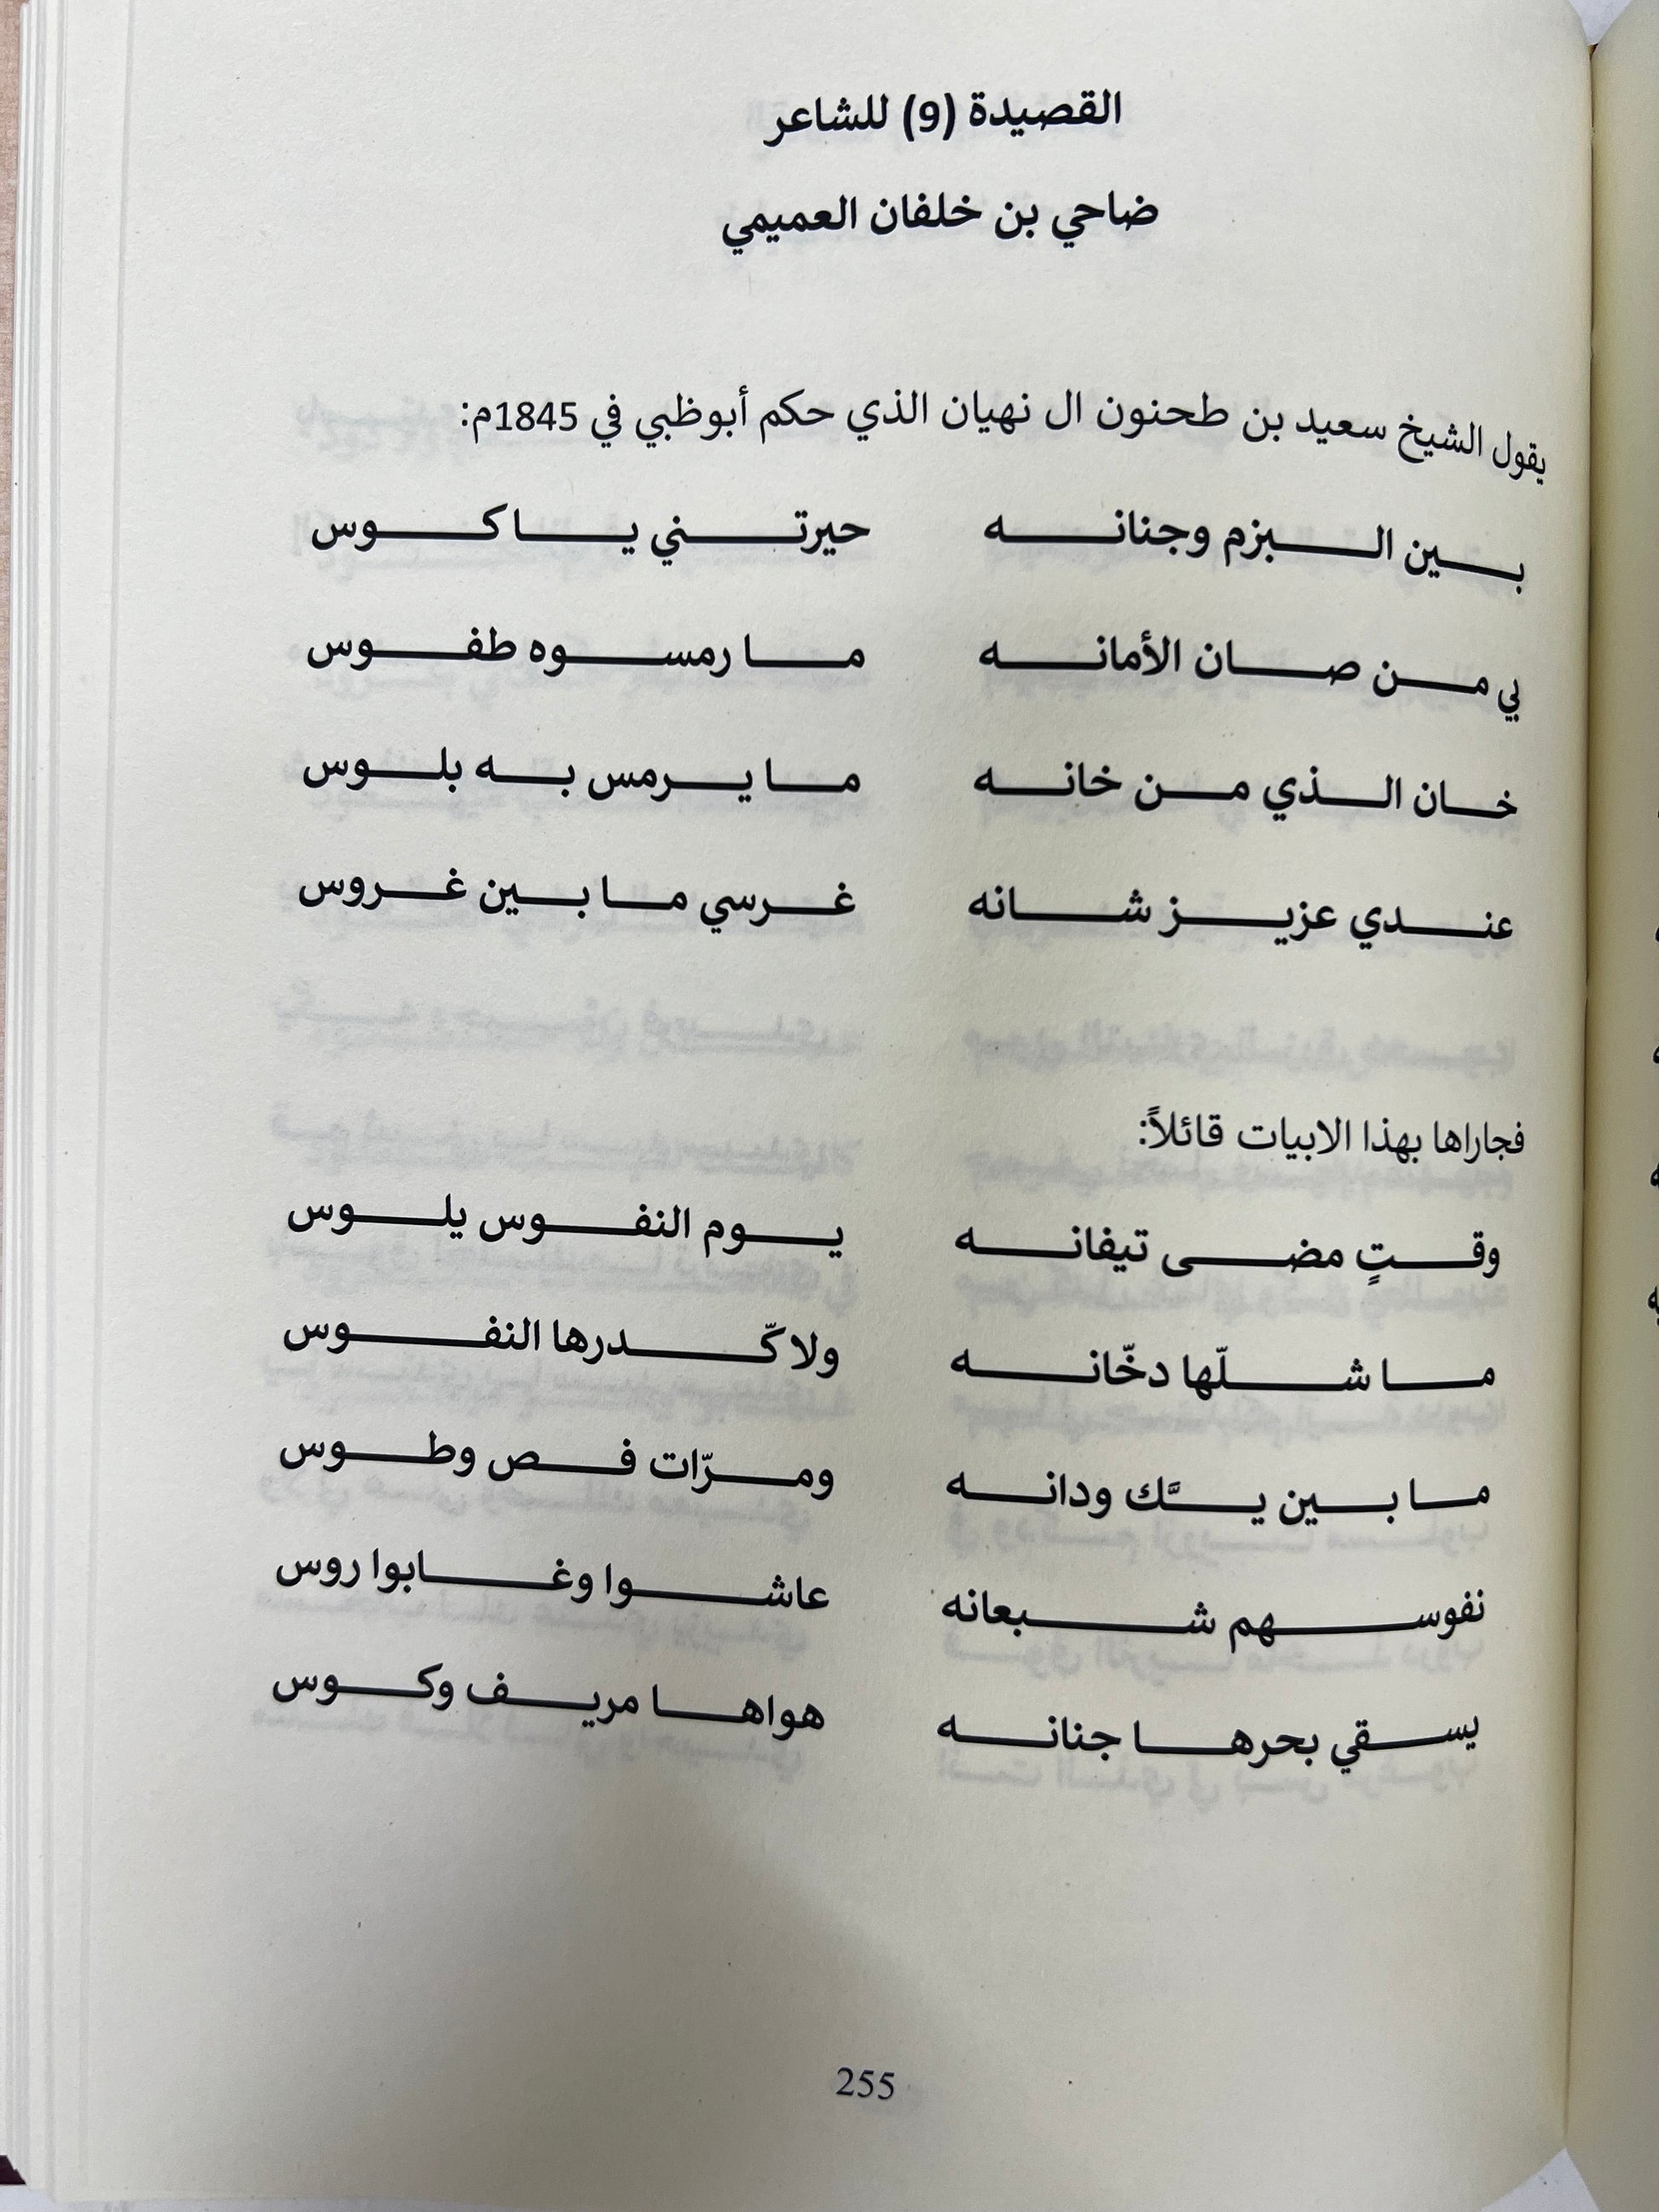 القصيدة (9) للشاعر
ضاحي بن خلفان العميمي
يقول الشيخ سعيد بن طحنون ال نهيان الذي حكم أبوظبي في 1845م:
بين البزم وجنانه حيرتني يا كوس
بي من صان الأمانه ما رمسوه طفوس
خان الذي من خانه ما يرمس به بلوس
عندي عزيز شانه غرسي ما بين غروس
فجاراها بهذا الابيات قائلاً:
وقتٍ مضى تيفانه يوم النفوس يلوس
ما شلّها دخّانه ولا كّدرها النفوس
ما بين يـَّك ودانه ومرّات فص وطوس
نفوسهم شبعانه عاشوا وغابوا روس
يسقي بحرها جنانه هواها مريف وكوس
255